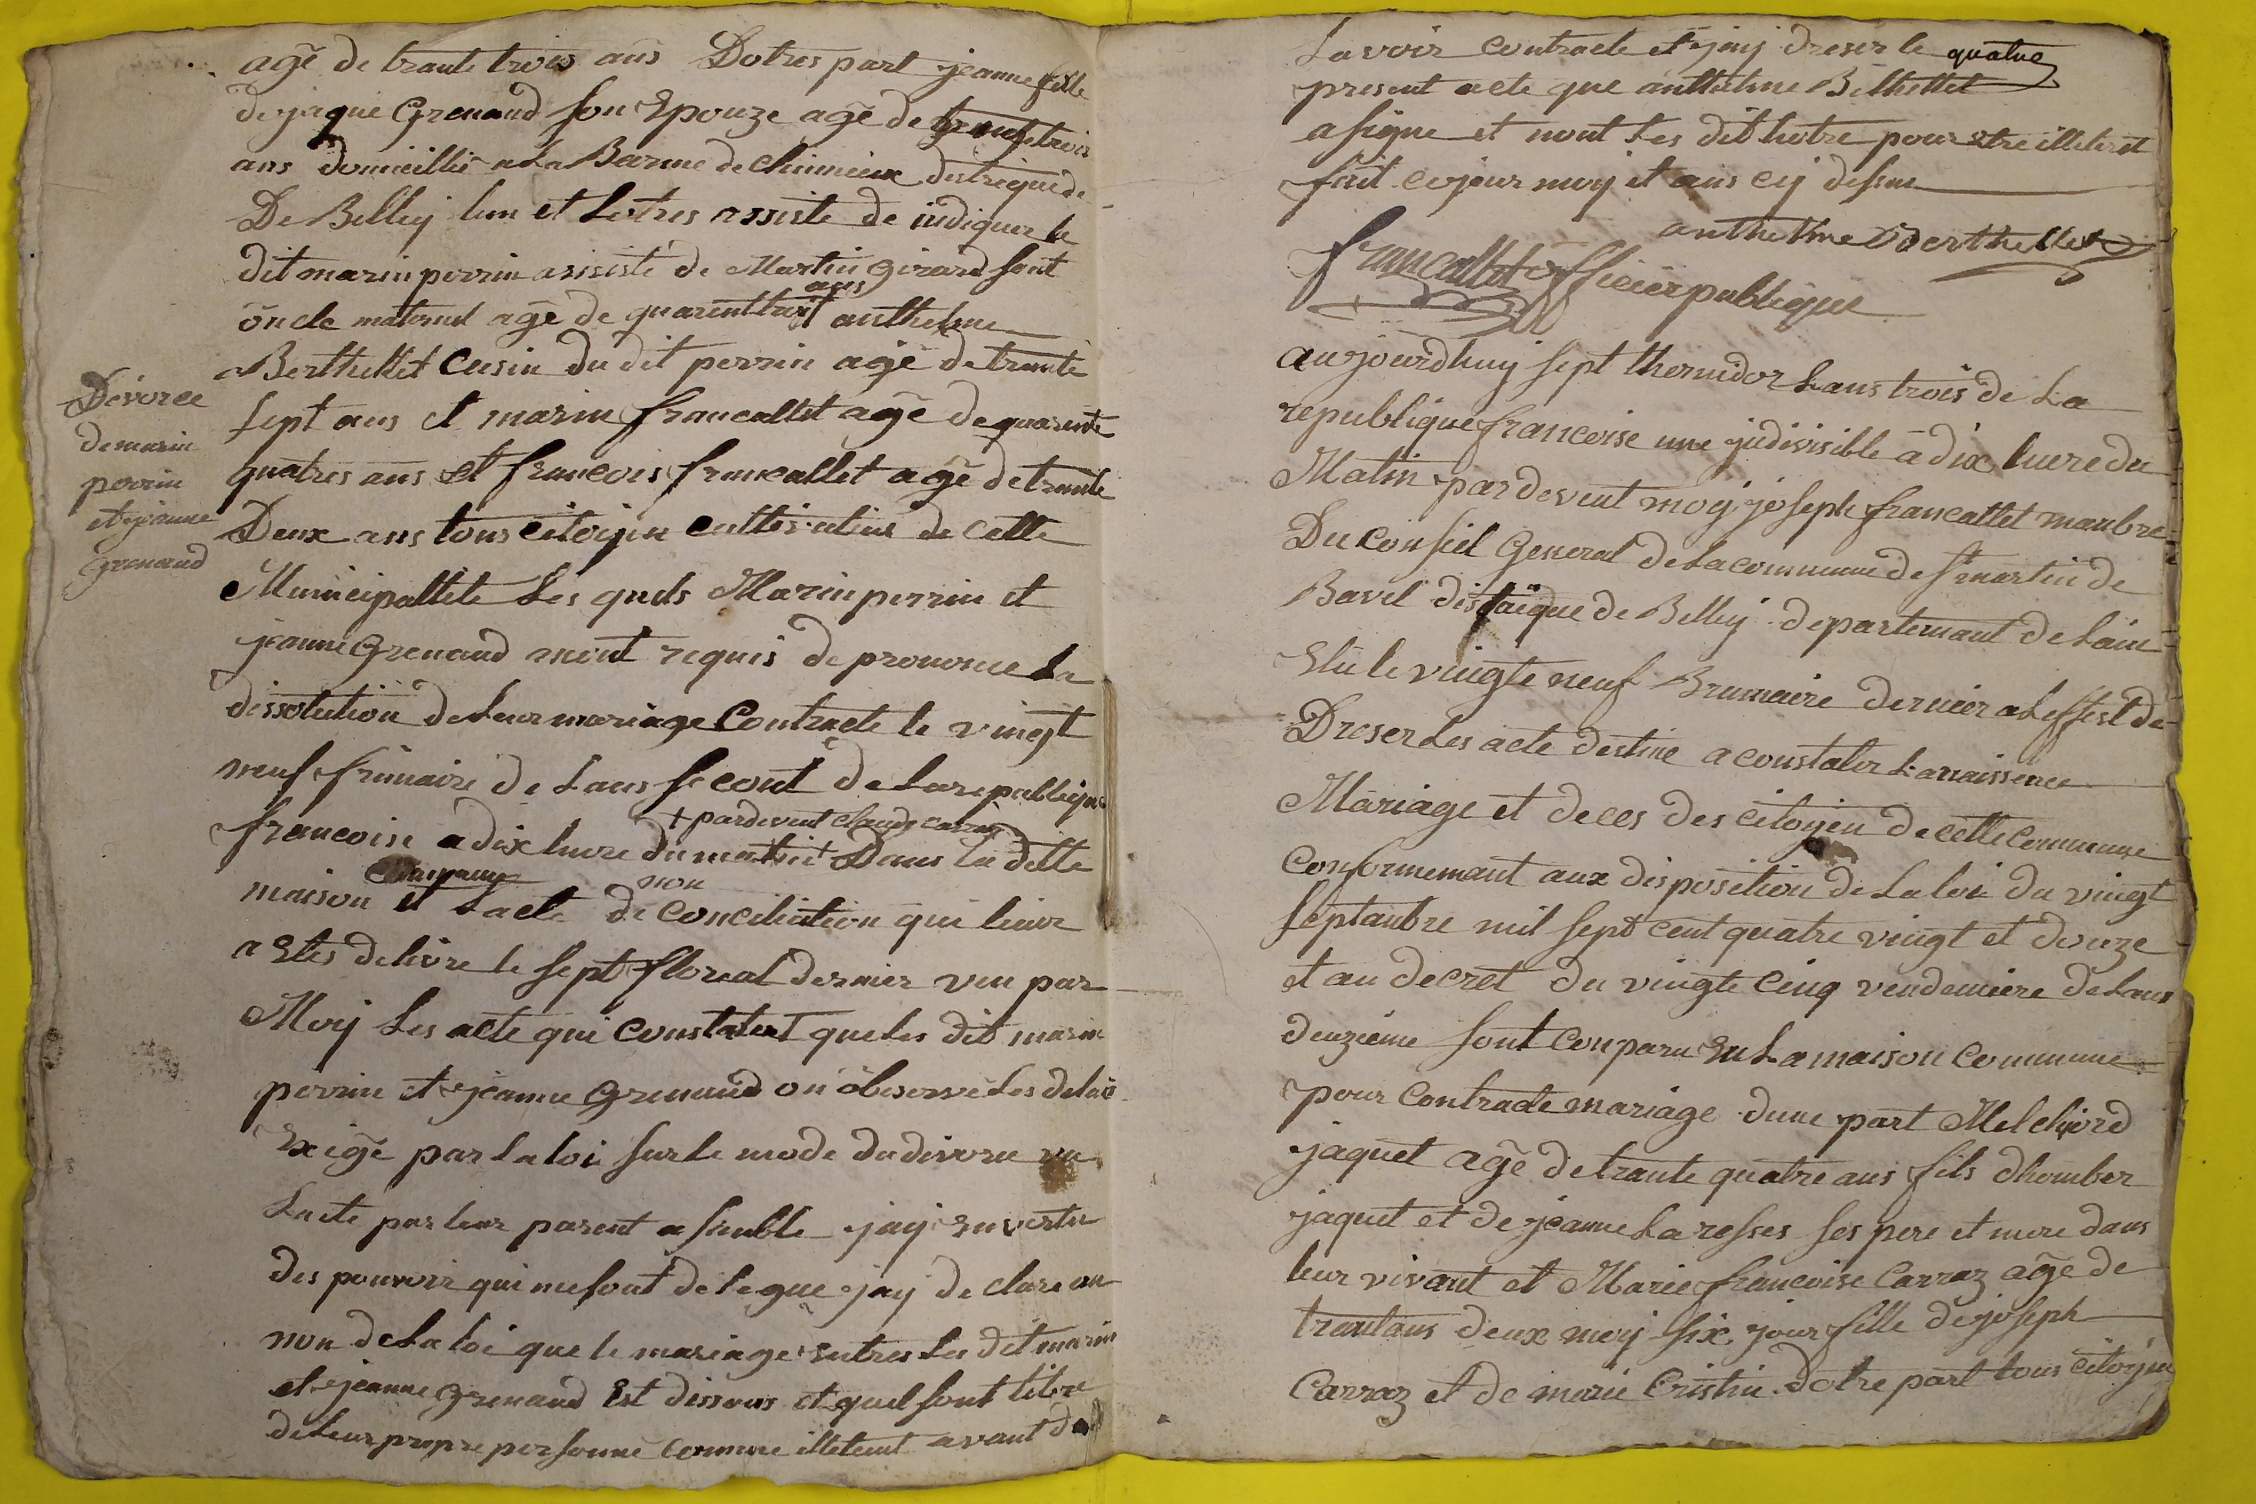 agé de trante trois ans Dotres part jeanne fille
de jaque Grenaud son Epouze agé de trante trois
ans domicillié a La Barme de Chimieux distrique de
De Belley lun et Lotres assisté de indiquer le
dit marin perrin assisté de Martin Girard sont
oncle maternel agé de quarent huit ans anthelme
Berthellet Cusin du dit perrin agé de trante
sept ans et marin francallet agé de quarente
quatres ans et francois francallet agé de trante
Deux ans tous citoijin cultivatieur de cette
Municipallité Les quels Marin perrin et
jeanne Grenaud mont requis de prononce La
dissolution de Leur mariage Contracté le vinegt
neuf frimaire de Lans secont de La republique
francoise a dix heure du matin + Dans la ditte
+ pardevent Claude carraz
maison Commune et Lacte de non conciliation qui lieur
a Etes delivré le sept floreal dernier veu par
Moij Les acte qui constatent que Les dit marin
perrin et jeanne Grenaud on observé Les delais
Exigé par La loi sur le mode du divorce vu
Lacte par leur parent assemblé jaij en vertu
des pouvoir qui me sont delegue jaij declare au
non de La loi que le mariage Entres Les dit marin
et jeanne Grenaud Est dissous et quil sont libre
de Leur propre personne comme illetent avant da
Devorce
de marin
perrin
et jeanne
Grenaud
Lavoir contracte et jaij dreser le quatre
present acte que anthelme Bethellet
a signe et nont Les dit hotre pour etre illiteret
fait ce jour moij et ans cij dessus
anthelme Berthellet
francallet officier publique
aujourdhuij sept thermidor Lans trois de La
republique francoise une judivisible a dix heure du
Matin pardevent moij joseph francallet manbre
Du consiel General de La commune de St martin de
Bavel distrique de Belley departemant de Lain
Elu le vingte neuf Brumaire dernier a Leffest de
Dreser Les acte destine a constater La naissence
Mariage et deces des citoijen de cette commune
Conformemant aux disposition de La loi du vingt
septanbre mil sept cent quatre vingt et douze
et au decret du vingte cinq vendemiere de Lans
deuzieme sont conparu En La maison commune
pour Contracte mariage dune part Melchiord
jaquet agé de trante quatre ans fils dhomber
jaquet et de jeanne La resses ses pere et mere dans
leur vivant et Marie francoise Carraz agé de
trantans deux moij six jour fille de joseph
Carraz et de marie Cristin dotre part tous citoijen